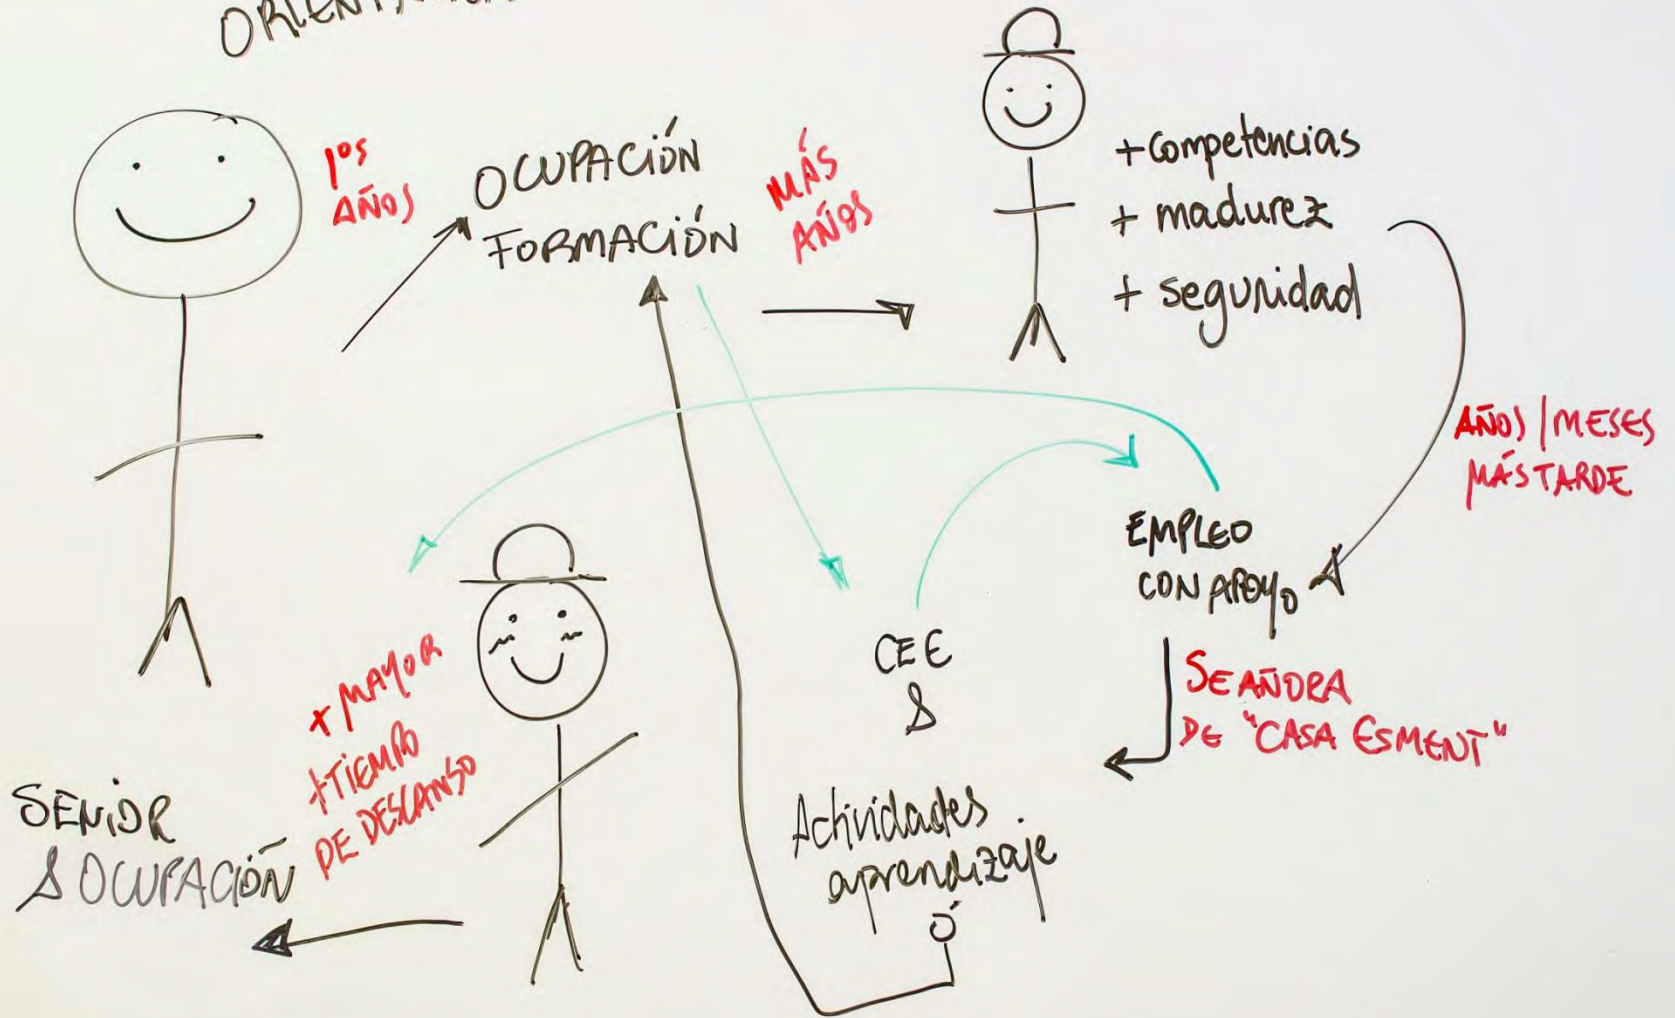 1os
AÑOS
OCUPACIÓN
FORMACIÓN
MÁS
AÑOS
+ competencias
+ madurez
+ seguridad
AÑOS / MESES
MÁS TARDE
EMPLEO
CON APOYO
SE AÑORA
DE "CASA ESMENT"
CEE
&
Actividades
aprendizaje
Ó
+ MAYOR
+ TIEMPO
DE DESCANSO
SENIOR
& OCUPACIÓN